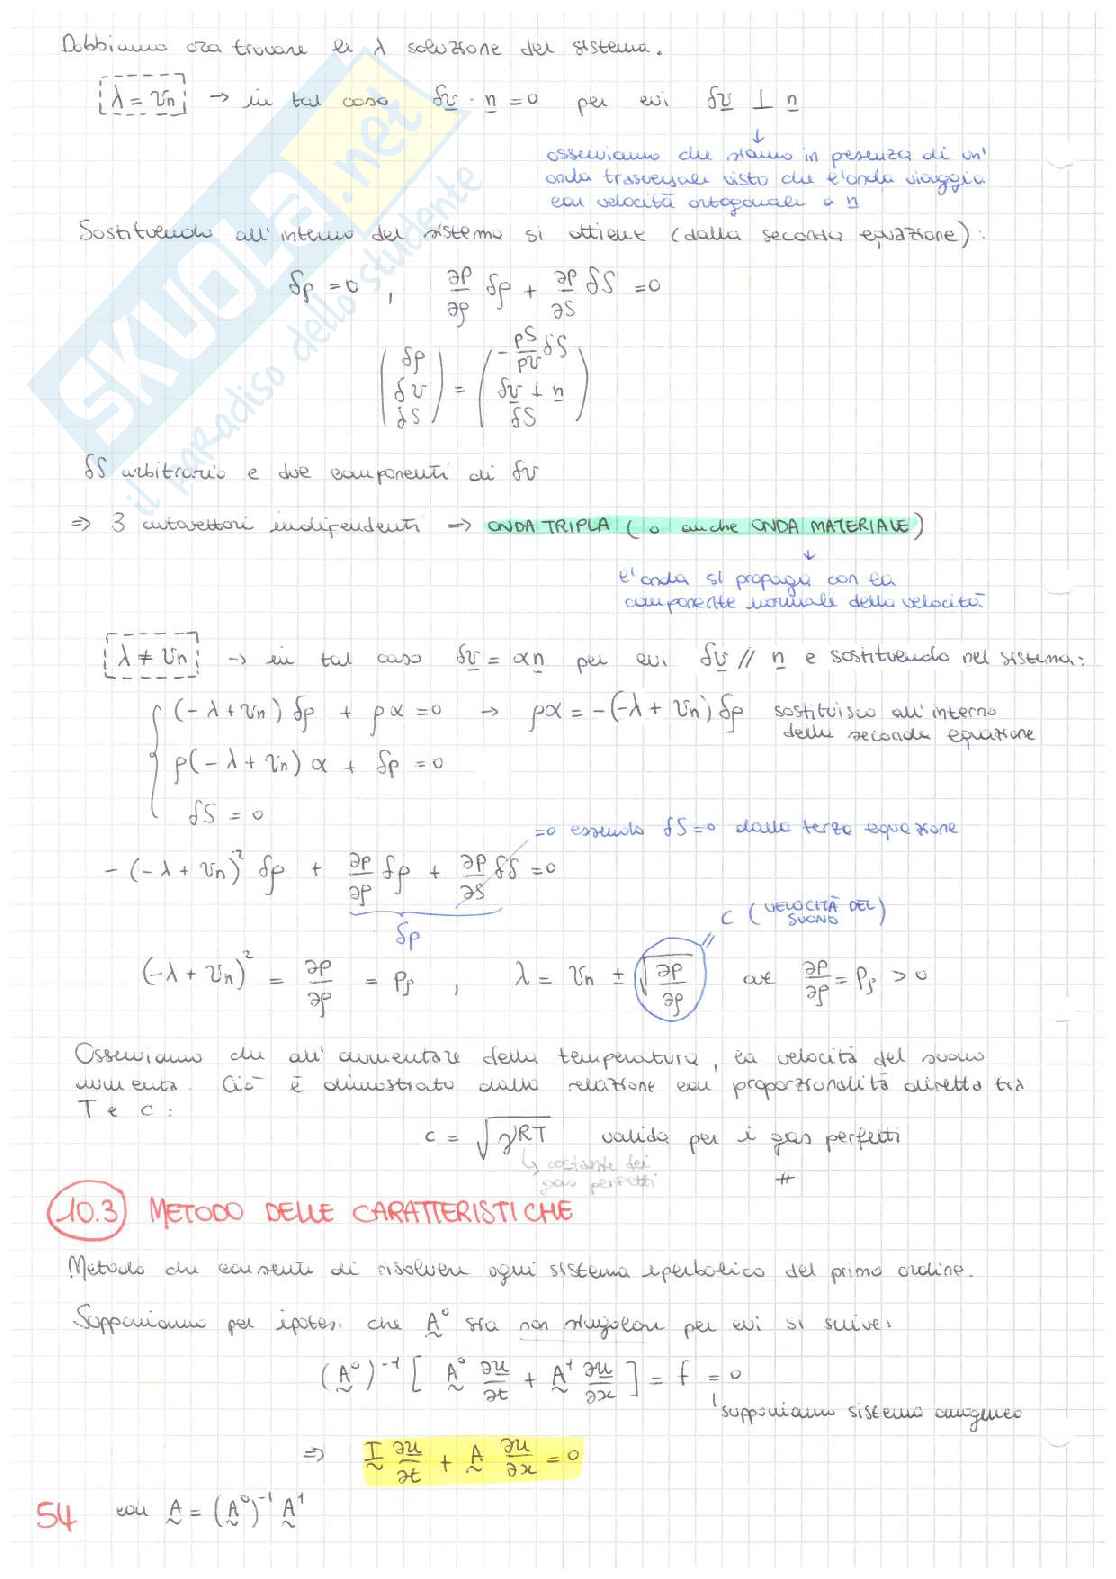 Dobbiamo ora trovare le λ soluzione del sistema.
λ = vn → in tal caso δv · n = 0 per cui δv ⊥ n
↓
osserviamo che siamo in presenza di un'
onda trasversale visto che l'onda viaggia
con velocità ortogonale a n
Sostituendo all'interno del sistema si ottiene (dalla seconda equazione):
δp = 0 , ∂p/∂ρ δρ + ∂p/∂S δS = 0
(δρ δv δS) = (- pS/pv δS δv ⊥ n δS)
δS arbitrario e due componenti di δv
⇒ 3 autovettori indipendenti → ONDA TRIPLA ( o anche ONDA MATERIALE)
↓
l'onda si propaga con la
componente normale della velocità
λ ≠ vn → in tal caso δv = αn per cui δv // n e sostituendo nel sistema:
(-λ + vn) δρ + ρα = 0 → ρα = -(-λ + vn) δρ sostituisco all'interno
della seconda equazione
ρ(-λ + vn) α + δp = 0
δS = 0
=0 essendo δS=0 dalla terza equazione
-(-λ + vn)² δρ + ∂p/∂ρ δρ + ∂p/∂S δS = 0
δp
c (VELOCITÀ DEL SUONO)
(-λ + vn)² = ∂p/∂ρ = pρ , λ = vn ± √∂p/∂ρ ove ∂p/∂ρ = pρ > 0
Osserviamo che all'aumentare della temperatura, la velocità del suono
aumenta. Ciò è dimostrato dalla relazione con proporzionalità diretta tra
T e c:
c = √γRT valida per i gas perfetti
↳ costante dei
gas perfetti
#
10.3 METODO DELLE CARATTERISTICHE
Metodo che consente di risolvere ogni sistema iperbolico del primo ordine.
Supponiamo per ipotesi che A⁰ sia non singolare per cui si scrive:
(A⁰)⁻¹ [ A⁰ ∂u/∂t + A¹ ∂u/∂x ] = f = 0
supponiamo sistema omogeneo
⇒ I ∂u/∂t + A ∂u/∂x = 0
54 con A = (A⁰)⁻¹ A¹
SKUOLA.net
il paradiso dello studente